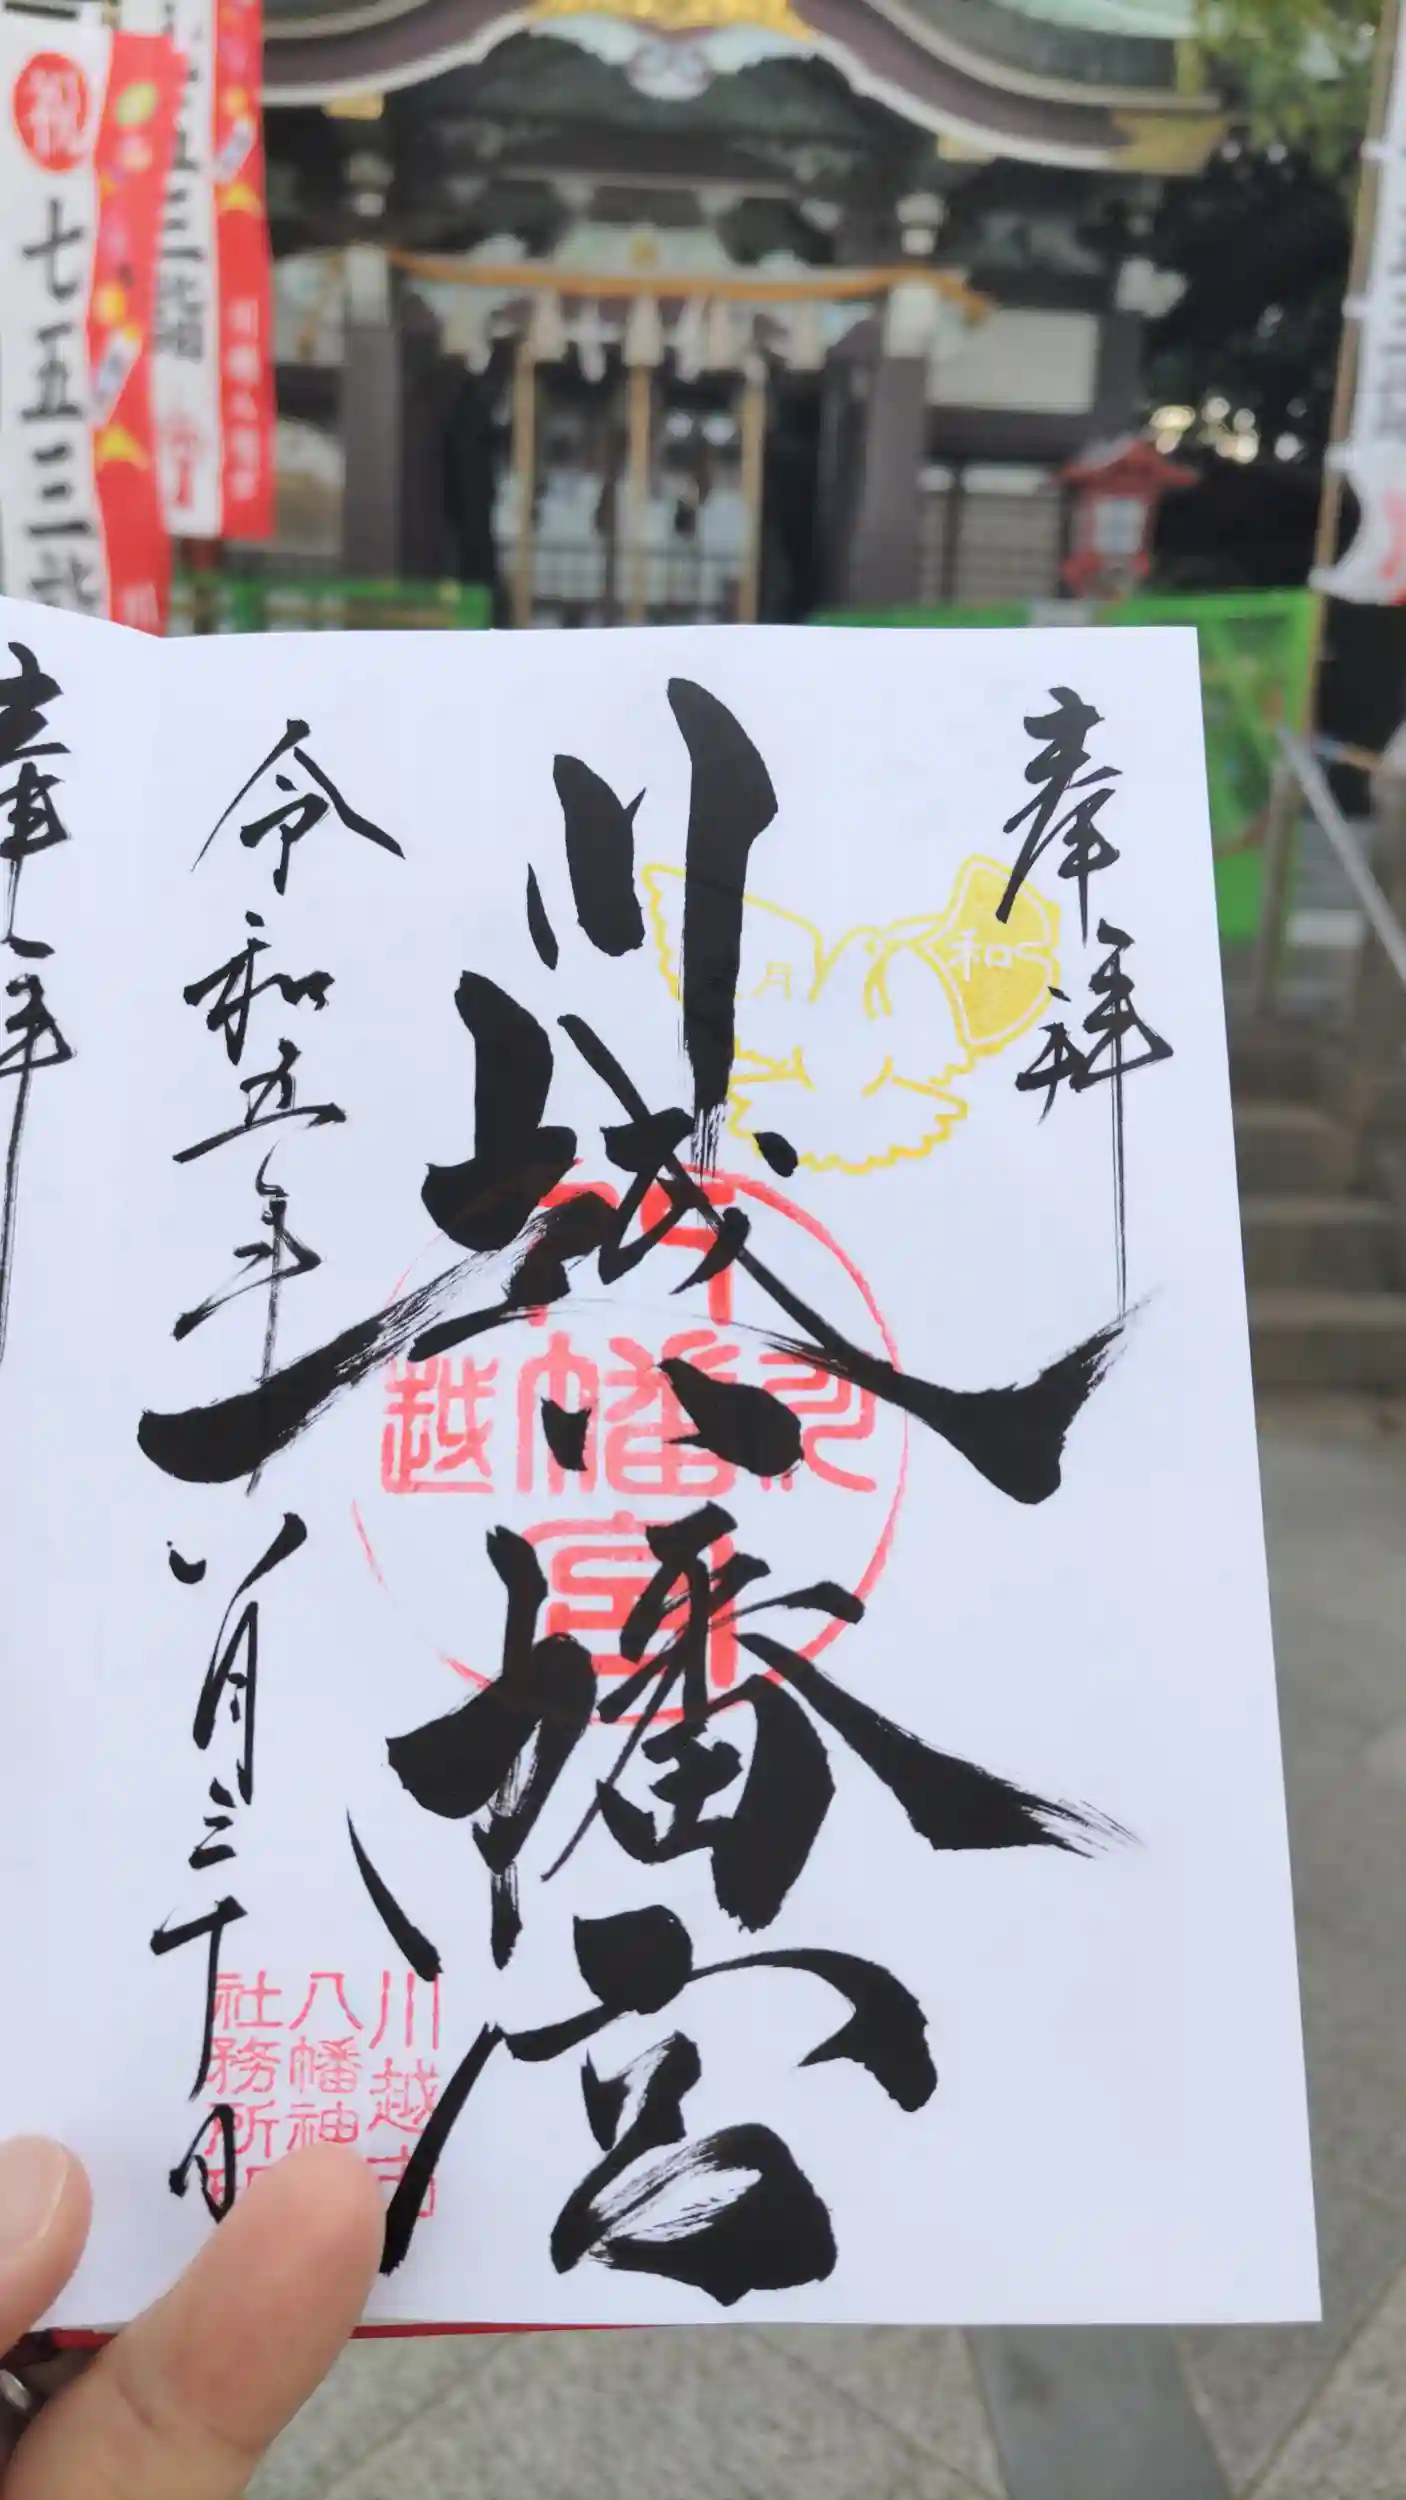 祝
七五三詣
五三詣
奉拝
和
月
川越八幡宮
川越
八幡宮
令和五年八月三十日
川越市
八幡神
社務所
奉拝